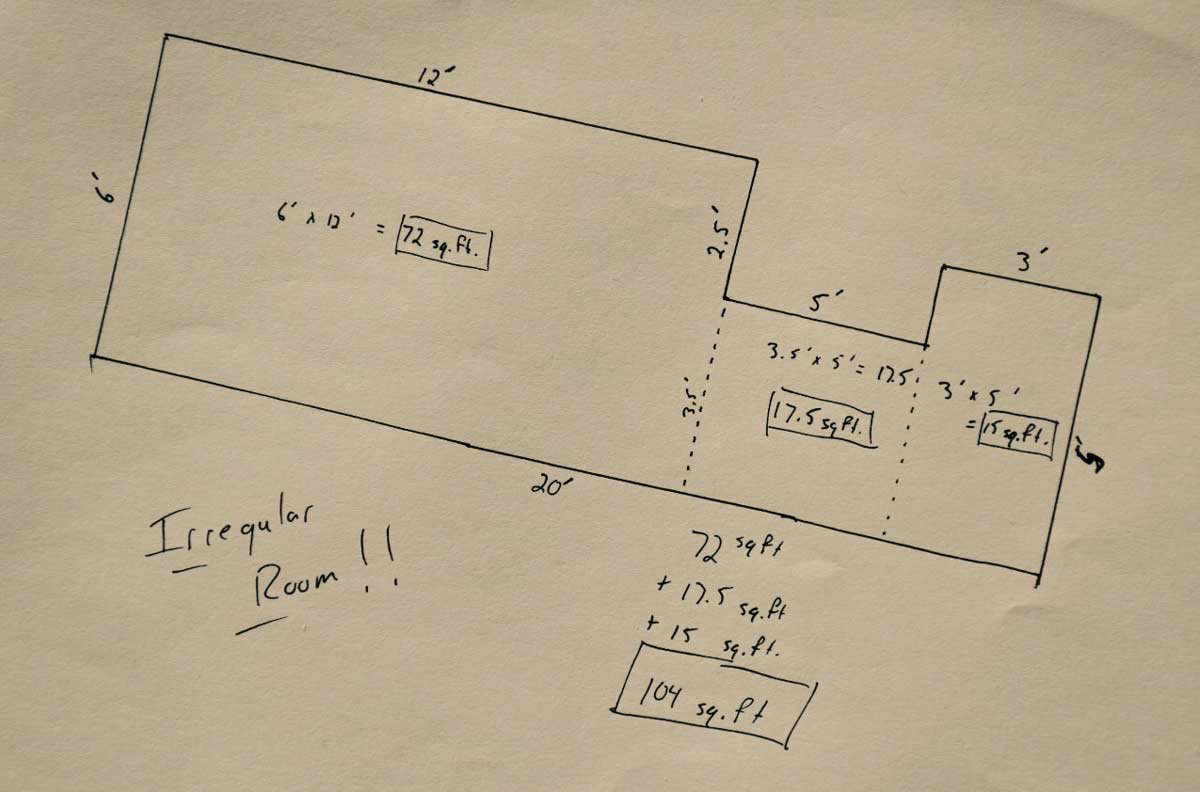 12'
6'
6' x 12' = 72 sq.ft.
2.5'
3'
5'
3.5' x 5' = 17.5
3' x 5'
= 15 sq.ft.
3.5'
17.5 sqft.
5'
20'
Irregular
Room!!
72 sqft
+ 17.5 sq.ft
+ 15 sq.ft.
104 sq.ft